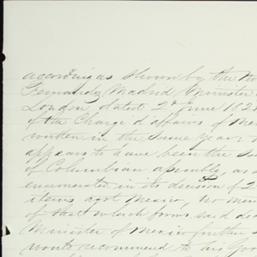 according as shown by the No
Fernandez Madrid Minister
London, dated 2d June 182
of the Charge d'affaires of Me
written in the same year
appears to have been the su
of Columbian assembly, as
enumerated in its decision of 2
items agst Mexico, no men
of that which from said de
Minister of Mexico further
would recommend to his Gov